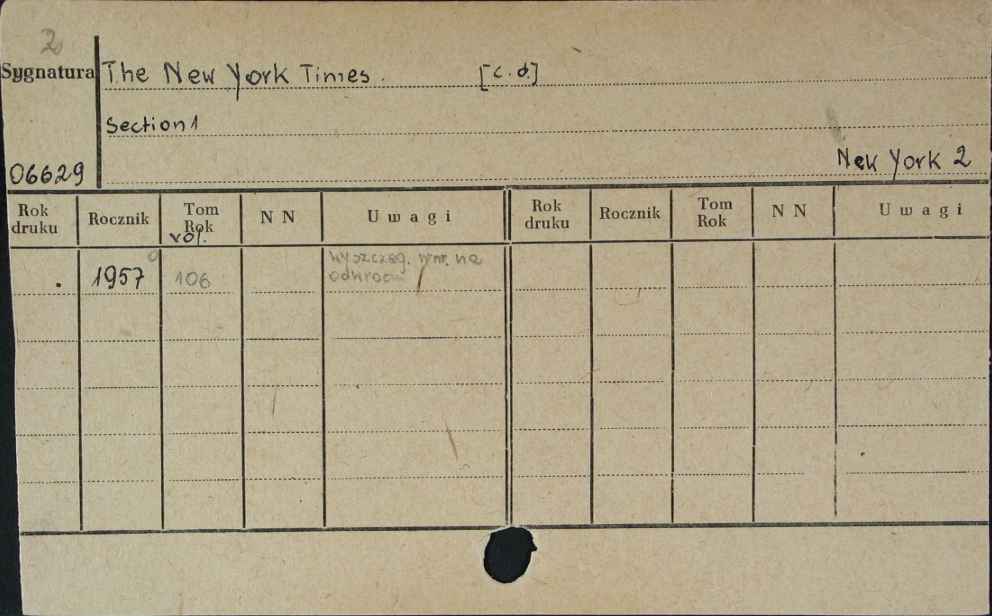 2
Sygnatura The New York Times. [c.d.]
Section 1
06629 New York 2
Rok druku Rocznik Tom Rok vol. N N Uwagi Rok druku Rocznik Tom Rok N N Uwagi
. 1957 106 wyszczeg. nr. na
odwrocie